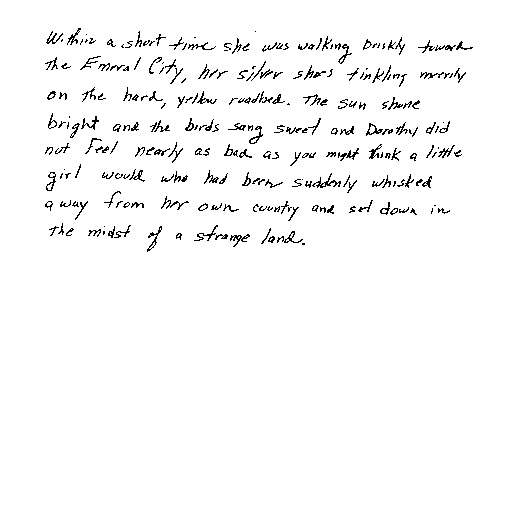 Within a short time she was walking briskly toward
the Emeral City, her silver shoes tinkling merrily
on the hard, yellow roadbed. The sun shone
bright and the birds sang sweet and Dorothy did
not feel nearly as bad as you might think a little
girl would who had been suddenly whisked
away from her own country and set down in
the midst of a strange land.